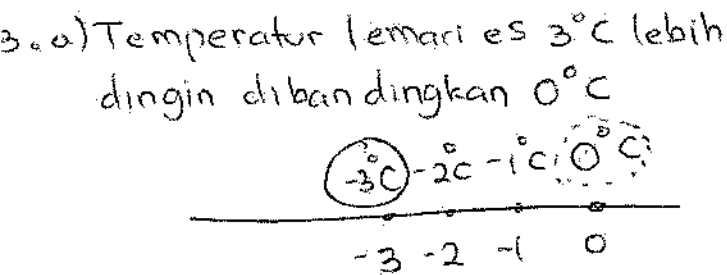 3.a) Temperatur lemari es 3°C lebih
dingin dibandingkan 0°C
-3°C -2°C -1°C 0°C
-3 -2 -1 0